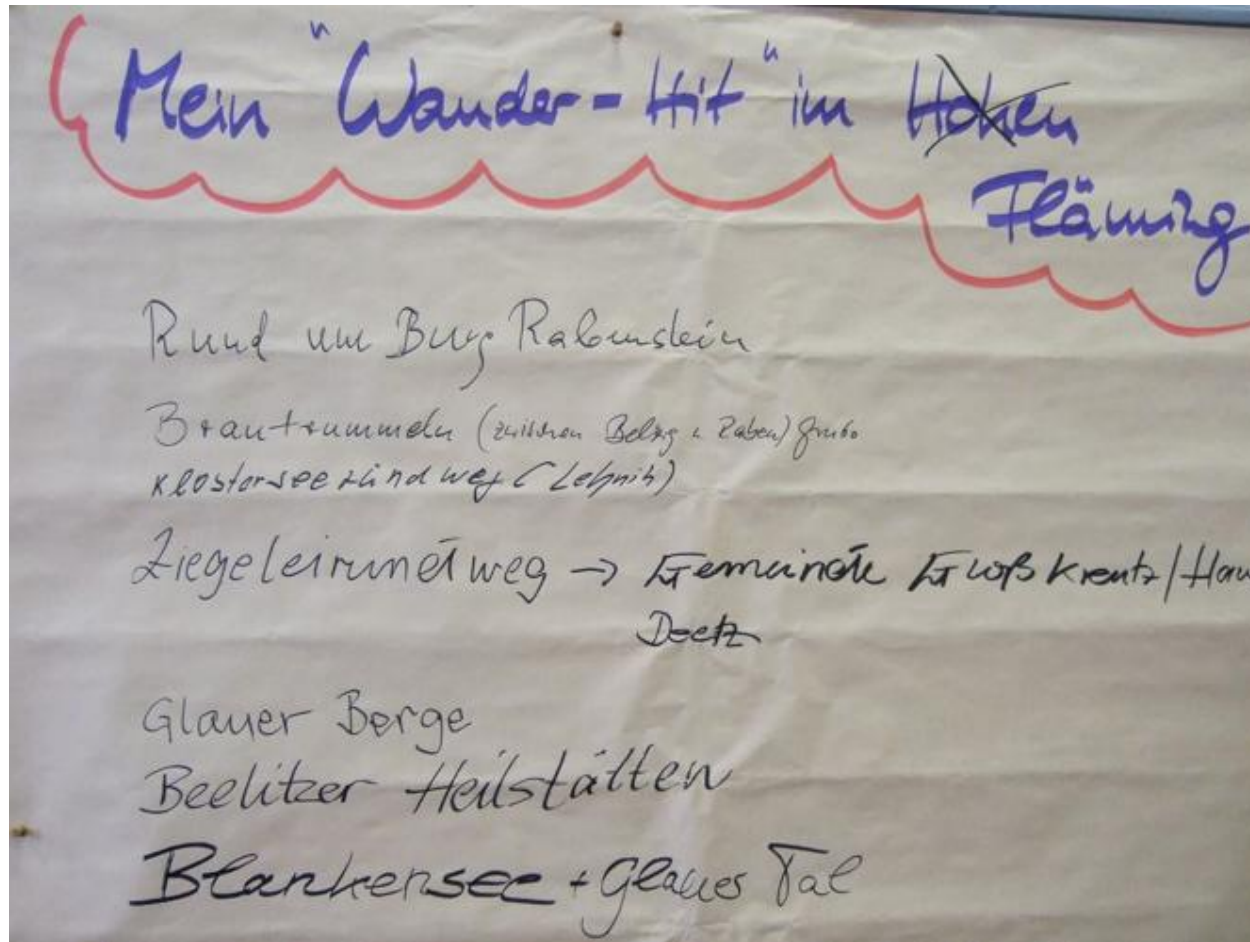 Mein "Wander-Hit" im Hohen
Fläming
Rund um Burg Rabenstein
Brautrummeln (zwischen Belzig u. Raben) Grubo
Klosterseerundweg (Lehnin)
Ziegeleirundweg → Gemeinde Groß Kreutz/Hav
Deetz
Glauer Berge
Beelitzer Heilstätten
Blankensee + Glauer Tal